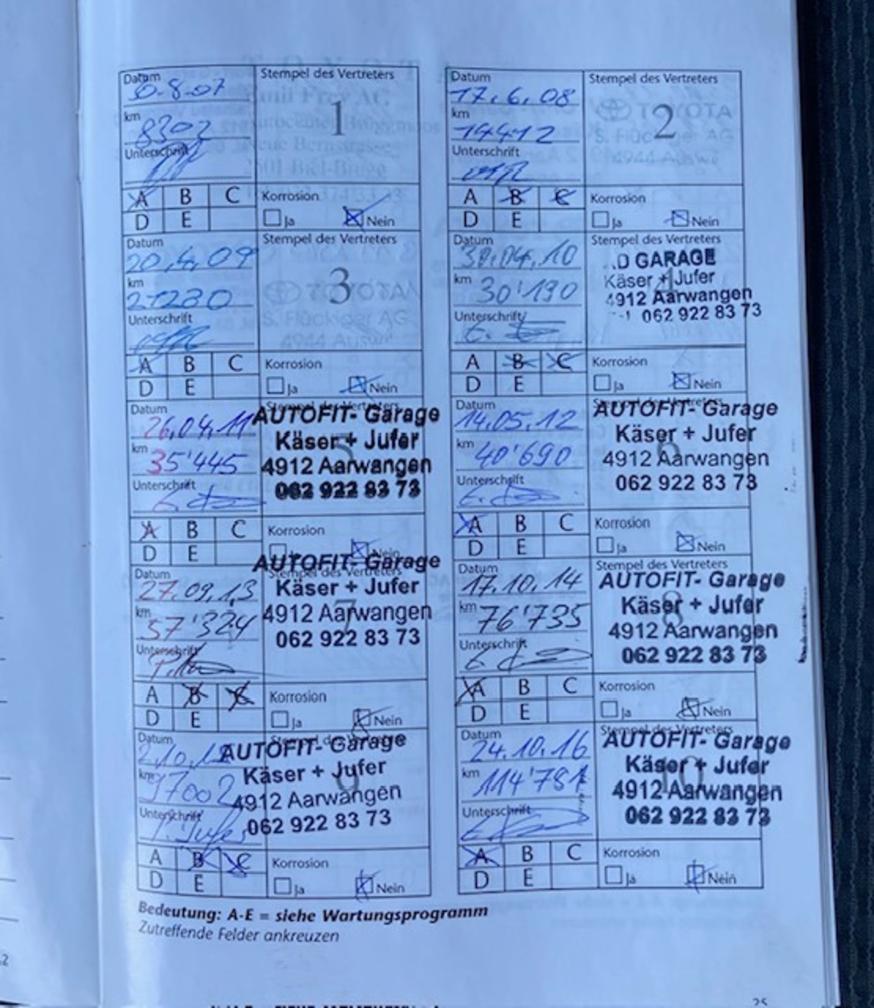 Datum
Stempel des Vertreters
1
km
8302
Unterschrift
A B C
D E
Korrosion
Ja Nein
Datum
17.6.08
Stempel des Vertreters
2
km
14412
Unterschrift
TOYOTA
S. Flückiger AG
4944 Auswil
A B C
D E
Korrosion
Ja Nein
Datum
20.4.09
Stempel des Vertreters
3
km
Unterschrift
A B C
D E
Korrosion
Ja Nein
Datum
30.04.10
Stempel des Vertreters
km
30'190
GARAGE
Käser + Jufer
4912 Aarwangen
062 922 83 73
Unterschrift
A B C
D E
Korrosion
Ja Nein
Datum
26.04.11
km
35'445
Unterschrift
AUTOFIT- Garage
Käser + Jufer
4912 Aarwangen
062 922 83 73
5
A B C
D E
Korrosion
Nein
Datum
14.05.12
km
40'690
Unterschrift
AUTOFIT- Garage
Käser + Jufer
4912 Aarwangen
062 922 83 73
6
A B C
D E
Korrosion
Ja Nein
Datum
27.09.13
km
57'324
Unterschrift
Stempel des Vertreters
AUTOFIT- Garage
Käser + Jufer
4912 Aarwangen
062 922 83 73
7
A B C
D E
Korrosion
Ja Nein
Datum
17.10.14
km
76'735
Unterschrift
Stempel des Vertreters
AUTOFIT- Garage
Käser + Jufer
4912 Aarwangen
062 922 83 73
8
A B C
D E
Korrosion
Ja Nein
Datum
km
97002
Unterschrift
AUTOFIT- Garage
Käser + Jufer
4912 Aarwangen
062 922 83 73
9
A B C
D E
Korrosion
Ja Nein
Datum
24.10.16
km
114'781
Unterschrift
Stempel des Vertreters
AUTOFIT- Garage
Käser + Jufer
4912 Aarwangen
062 922 83 73
10
A B C
D E
Korrosion
Ja Nein
Bedeutung: A-E = siehe Wartungsprogramm
Zutreffende Felder ankreuzen
25